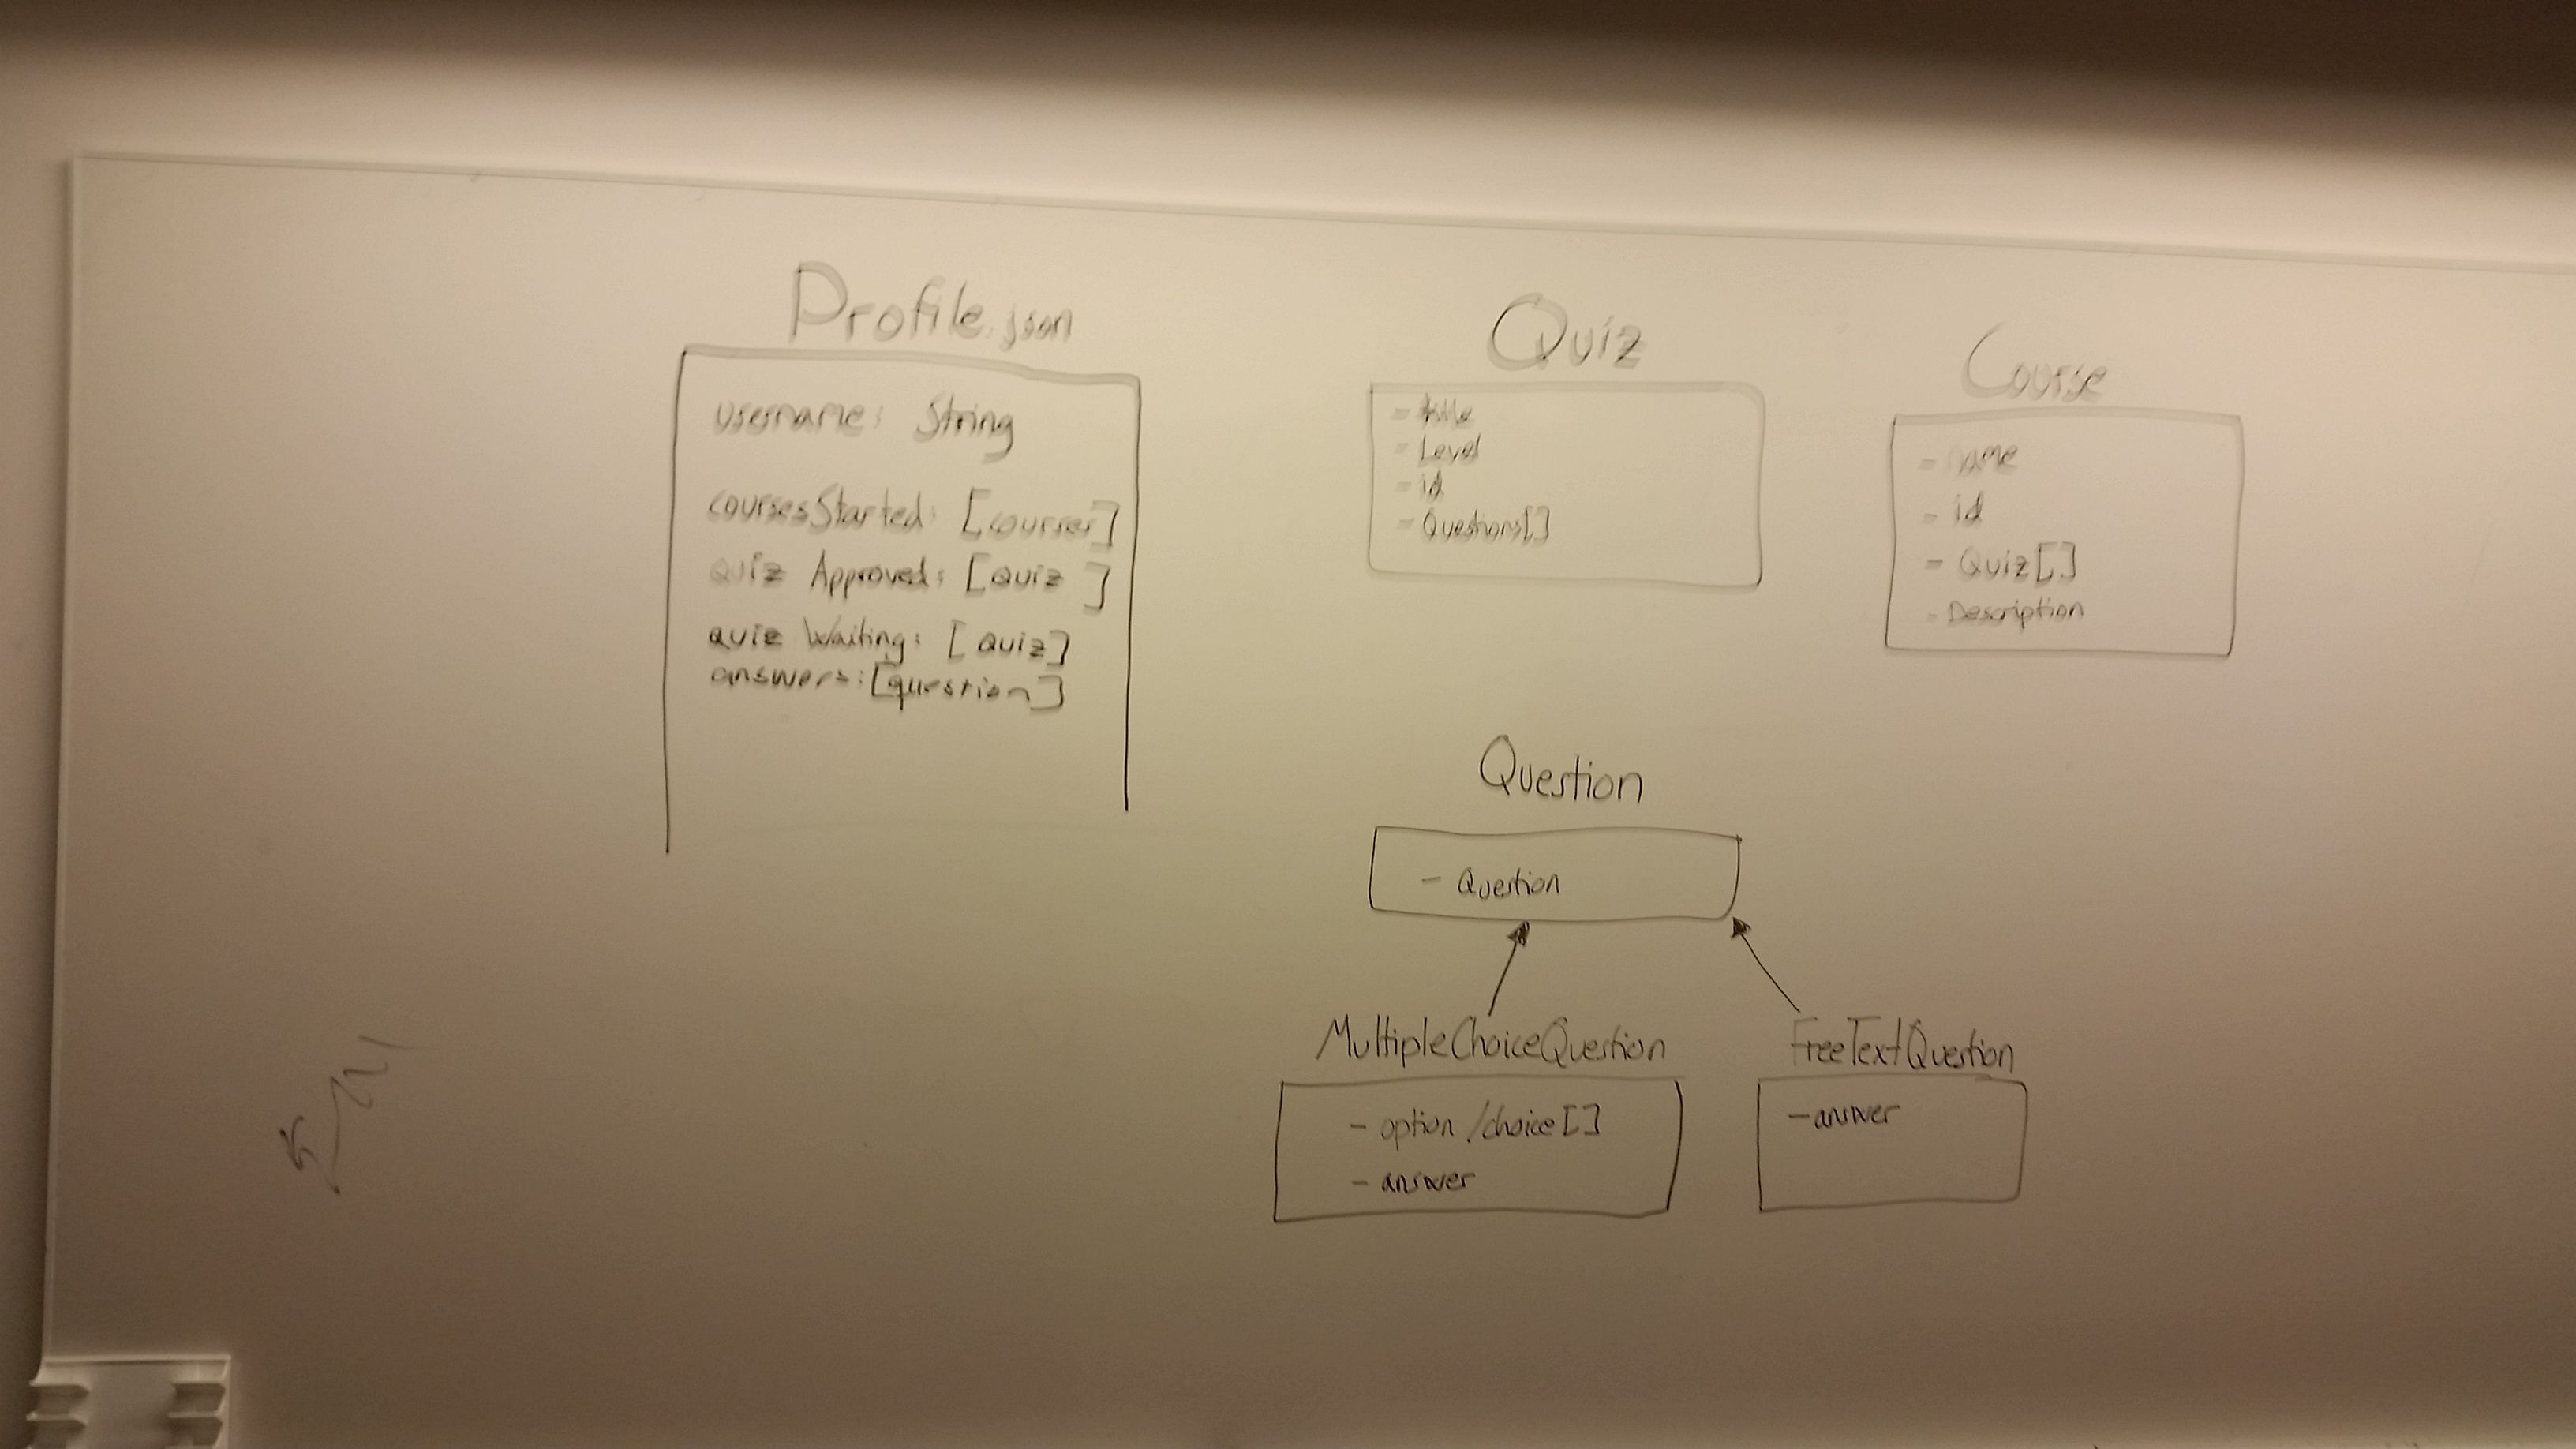 Profile.json
username: String
coursesStarted: [courses]
quiz Approved: [quiz ]
quiz Waiting: [quiz]
answers: [question]
Quiz
- title
- Level
- id
- Questions[]
Course
- name
- id
- Quiz[]
- Description
Question
- Question
MultipleChoiceQuestion
- option/choice[]
- answer
FreeTextQuestion
- answer